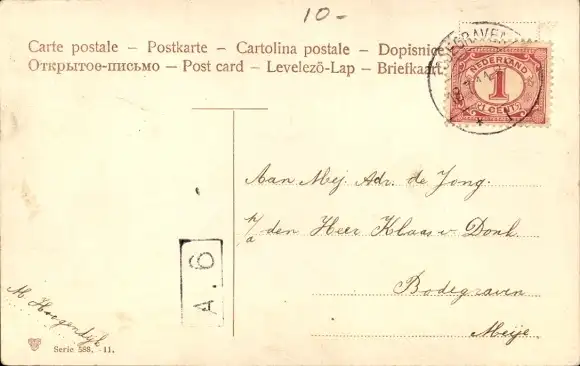 10-
Carte postale – Postkarte – Cartolina postale – Dopisnice
Открытое-письмо – Post card – Levelező-Lap – Briefkaart
NEDERLAND
1
1 CENT
Aan Mej. Adr. de Jong.
p/a den Heer Klaas v. Donk
Bodegraven
Meije
A. 6
M Hoogendijk
Serie 588. 11.